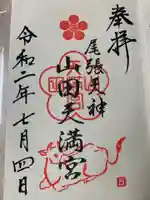 奉拝
尾張天神
山田天満宮
令和二年七月四日